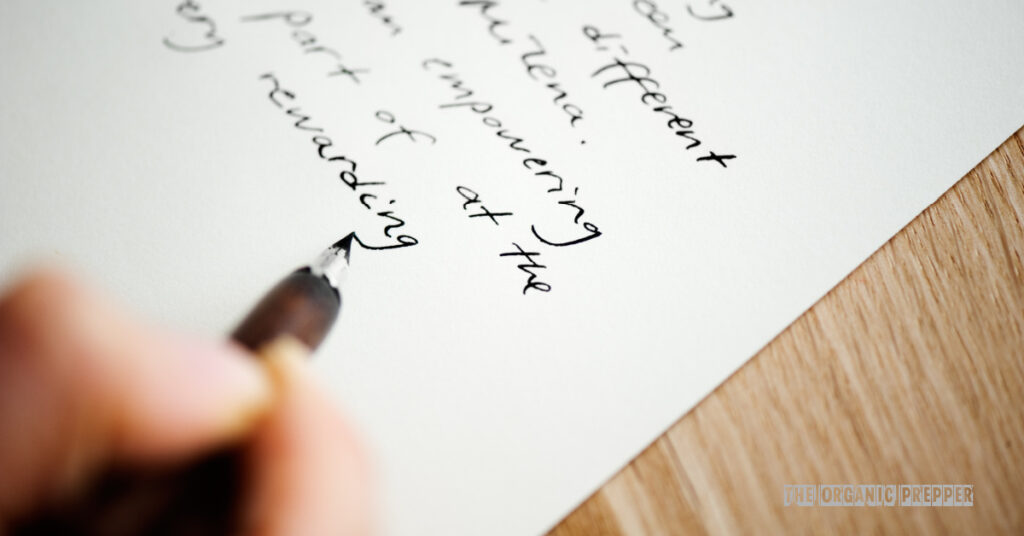 different
empowering
part of at the
rewarding
THE ORGANIC PREPPER